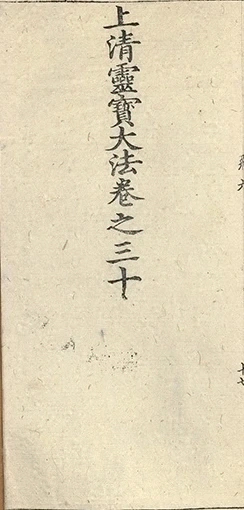 上清靈寶大法卷之三十